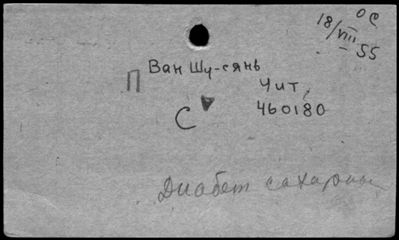 18/VIII
55
П Ван Шу-сянь
Чит.
С 460180
Диабет сахарный